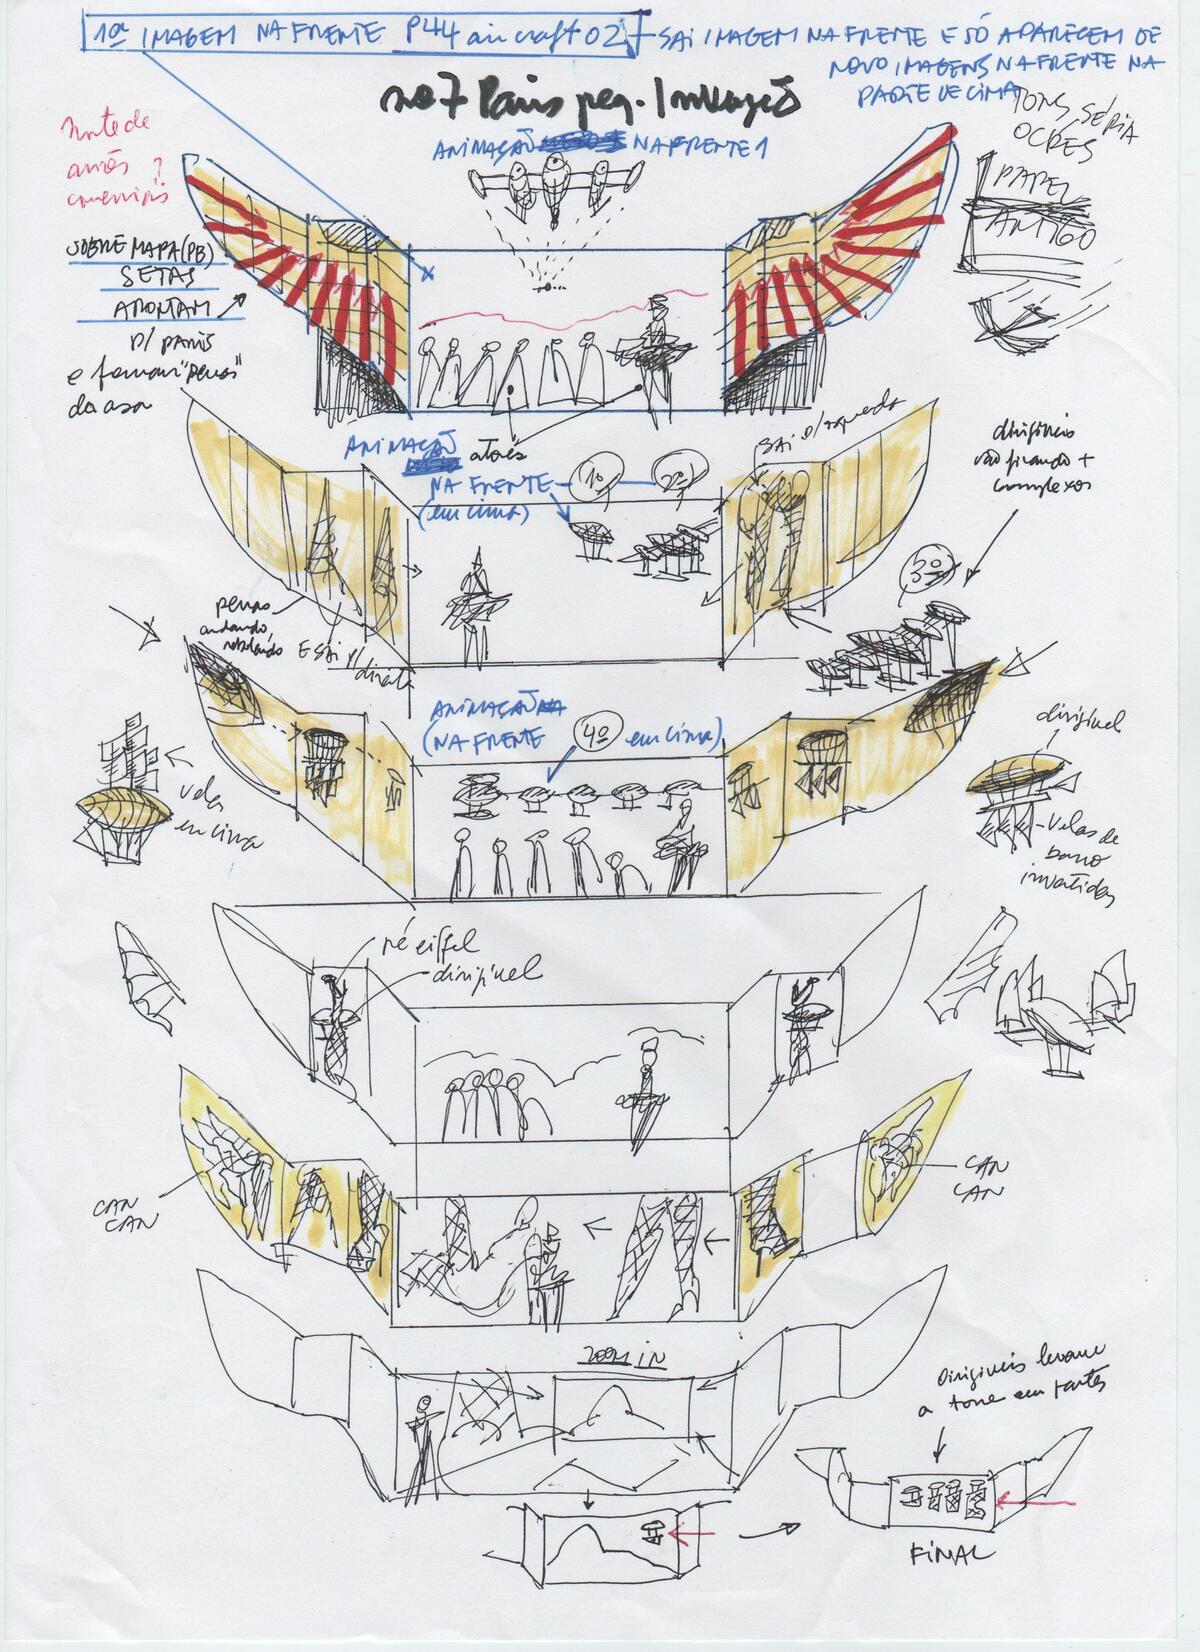 1ª IMAGEM NA FRENTE P44 aircraft 02
SAI IMAGEM NA FRENTE E SÓ APARECEM DE
NOVO IMAGENS NA FRENTE NA
PARTE DE CIMA
nº 7 Paris peq. Invasão
ANIMAÇÃO NA FRENTE 1
TONS SÉPIA
OCRES
PAPEL
ANTIGO
SOBRE MAPA (PB)
SETAS
APONTAM
p/ Paris
e formam "penas"
da asa
ANIMAÇÃO
NA FRENTE
(em cima)
atrás
1º
2º
sai p/ esquerda
dirigíveis
vão ficando +
complexos
3º
pernas
andando,
rebolando
E SAI p/ direita
ANIMAÇÃO
(NA FRENTE 4º em cima)
velas
em cima
dirigível
velas de
barco
invertidas
pé eiffel
dirigível
CAN
CAN
CAN
CAN
ZOOM IN
Dirigíveis levam
a torre em partes
FINAL